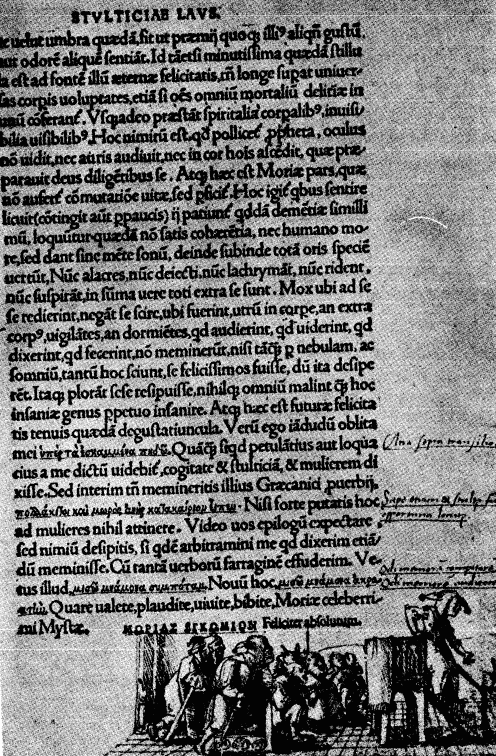 STVLTICIAE LAVS.
te uelut umbra quædã, fit ut præmij quoqȝ illi⁹ aliqñ gustũ,
aut odorẽ aliquẽ sentiãt. Id tãetsi minutissima quædã stillu
la est ad fontẽ illũ æternæ felicitatis, tñ longe supat uniuer-
sas corpis uoluptates, etiã si oẽs omniũ mortaliũ deliciæ in
unũ cõferantʳ. Vsqȝadeo præstãt spiritalia corpalib⁹, inuisi/
bilia uisibilib⁹. Hoc nimirũ est, qď pollicetʳ ppheta, oculus
nõ uidit, nec auris audiuit, nec in cor hoĩs ascẽdit, quæ præ-
parauit deus diligẽtibus se. Atqȝ hæc est Moriæ pars, quæ
nõ aufertʳ cõmutatiõe uitæ, sed pficitʳ. Hoc igitʳ qbus sentire
licuit (cõtingit aũt ppaucis) ij patiuntʳ qddã demẽtiæ simillí
mũ, loquũtur quædã nõ satis cohærẽtia, nec humano mo-
re, sed dant sine mẽte sonũ, deinde subinde totã oris speciẽ
uertũt. Nũc alacres, nũc deiecti, nũc lachrymãt, nũc rident,
nũc suspirãt, in sũma uere toti extra se sunt. Mox ubi ad se
se redierint, negãt se scire, ubi fuerint, utrũ in corpe, an extra
corp⁹, uigilãtes, an dormiẽtes, qď audierint, qď uiderint, qď
dixerint, qď fecerint, nõ meminerũt, nisi tãqȝ p nebulam, ac
somniũ, tantũ hoc sciunt, se felicissimos fuisse, dũ ita desipe
rẽt. Itaqȝ plorãt sese resipuisse, nihilqȝ omniũ malint qȝ hoc
insaniæ genus ppetuo insanire. Atqȝ hæc est futuræ felicita
tis tenuis quædã degustatiuncula. Verũ ego iãdudũ oblita
mei ὑπὲρ τὰ ἐσκαμμένα πηδῶ. Quãqȝ siqd petulãtius aut loqua
cius a me dictũ uidebitʳ, cogitate & stulticiã, & mulierem di
xisse. Sed interim tñ memineritis illius Græcanici puerbij,
πολλάκι τοι καὶ μωρὸς ἀνὴρ κατακαίριον εἶπεν. Nisi forte putatis hoc
ad mulieres nihil attinere. Video uos epilogũ expectare,
sed nimiũ desipitis, si qdẽ arbitramini me qd dixerim etiã/
dũ meminisse. Cũ tantã uerborũ farraginẽ effuderim. Ve-
tus illud, μισῶ μνάμονα συμπόταν. Nouũ hoc, μισῶ μνάμονα ἀκρο-
ατὼ. Quare ualete, plaudite, uiuite, bibite, Moriæ celeberri-
mi Mystæ.
ΜΩΡΙΑΣ ΕΓΚΩΜΙΟΝ Feliciter absolutum.